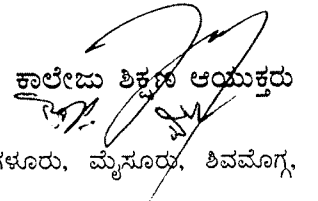 ಕಾಲೇಜು ಶಿಕ್ಷಣ ಆಯುಕ್ತರು
ಗಳೂರು, ಮೈಸೂರು, ಶಿವಮೊಗ್ಗ,